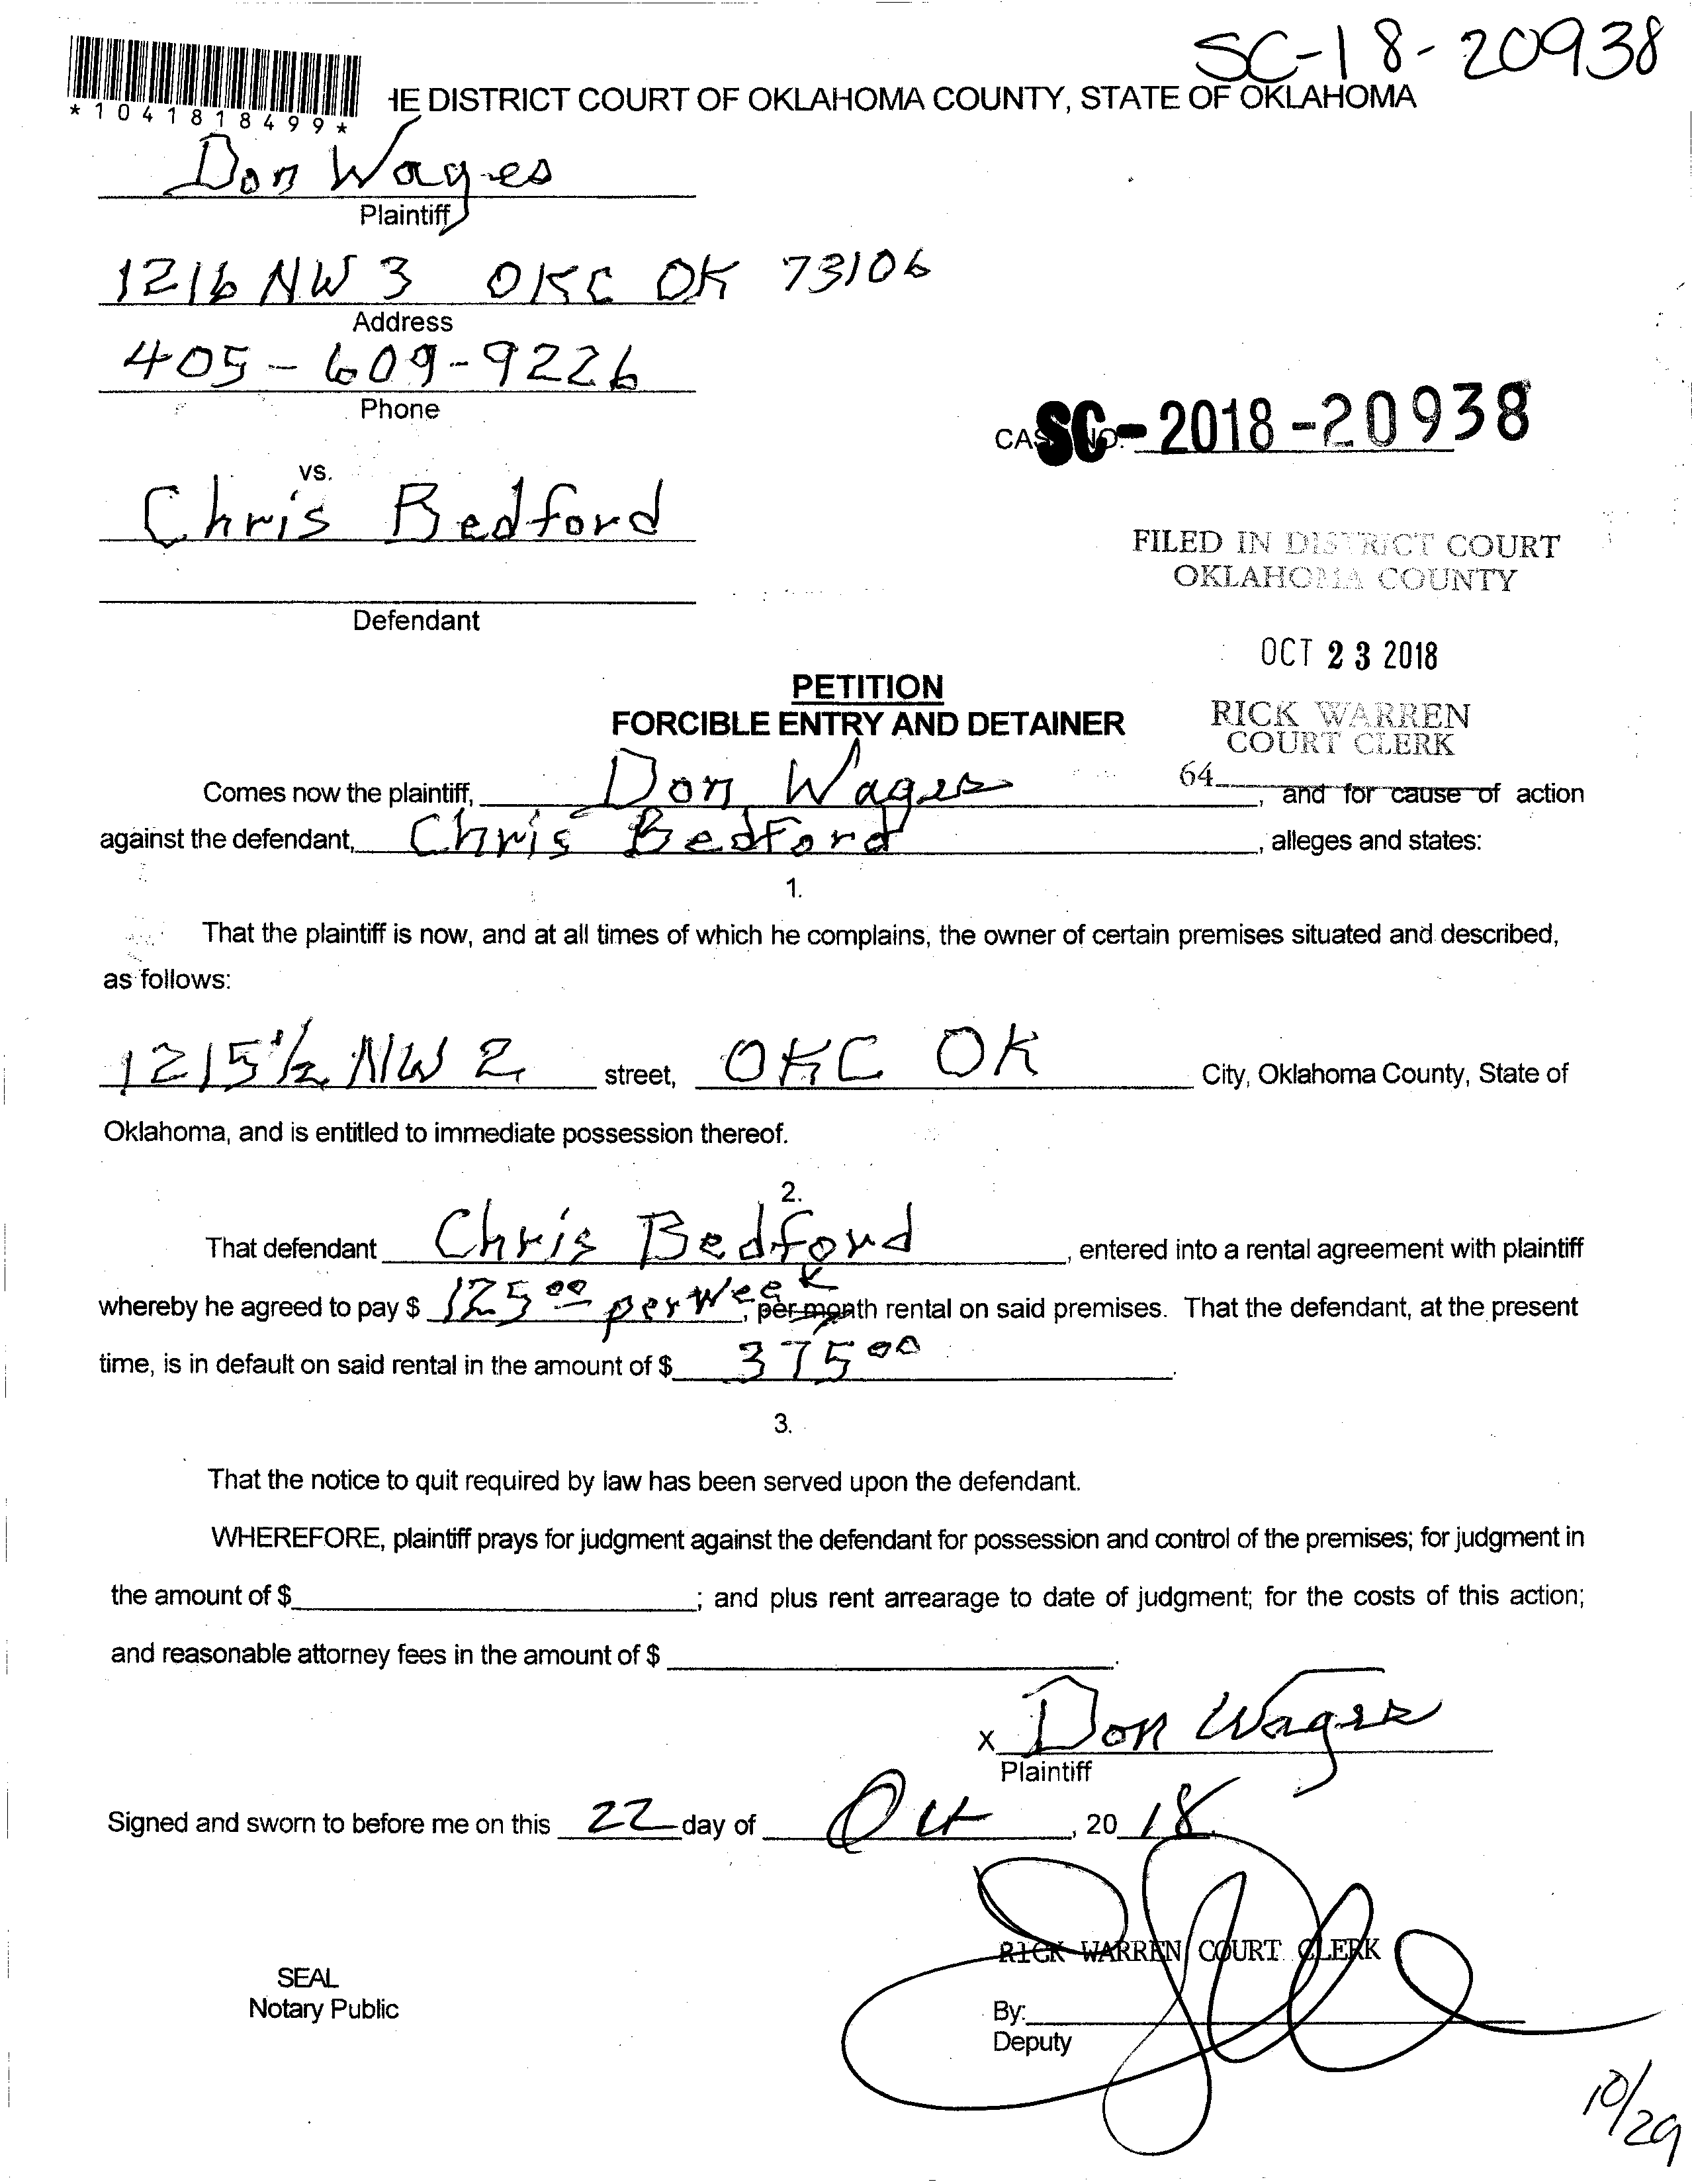 SC-18-20938
*1041818499*
HE DISTRICT COURT OF OKLAHOMA COUNTY, STATE OF OKLAHOMA
Don Wages
Plaintiff
1216 NW 3 OKC OK 73106
Address
405-609-9226
Phone
CASE NO. SC-2018-20938
vs.
Chris Bedford
FILED IN DISTRICT COURT
OKLAHOMA COUNTY
Defendant
OCT 23 2018
PETITION
RICK WARREN
FORCIBLE ENTRY AND DETAINER
COURT CLERK
64
Comes now the plaintiff, Don Wages, and for cause of action
against the defendant, Chris Bedford, alleges and states:
1.
That the plaintiff is now, and at all times of which he complains, the owner of certain premises situated and described,
as follows:
1215 1/2 NW 2 street, OKC OK City, Oklahoma County, State of
Oklahoma, and is entitled to immediate possession thereof.
2.
That defendant Chris Bedford, entered into a rental agreement with plaintiff
whereby he agreed to pay $ 125 00 per week, per month rental on said premises. That the defendant, at the present
time, is in default on said rental in the amount of $ 375 00.
3.
That the notice to quit required by law has been served upon the defendant.
WHEREFORE, plaintiff prays for judgment against the defendant for possession and control of the premises; for judgment in
the amount of $; and plus rent arrearage to date of judgment; for the costs of this action;
and reasonable attorney fees in the amount of $.
x Don Wages
Plaintiff
Signed and sworn to before me on this 22 day of Oct, 20 18.
RICK WARREN COURT CLERK
SEAL
Notary Public
By:
Deputy
10/29